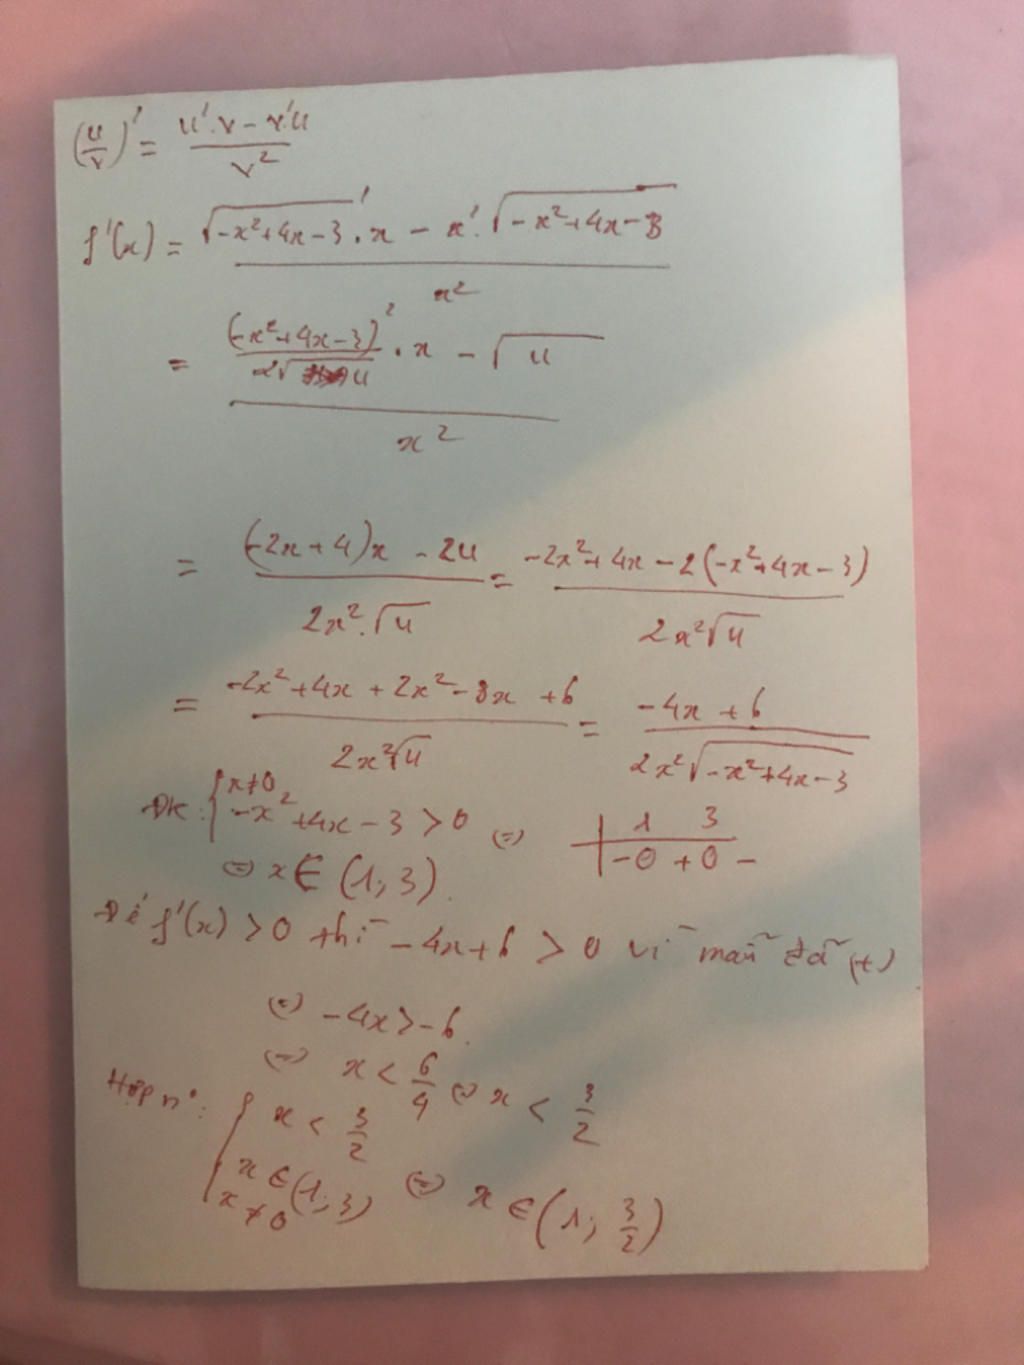 (u/v)' = (u'.v - v'.u)/v²
f'(x) = (√(-x²+4x-3)' . x - x'. √(-x²+4x-3))/x²
= ((-x²+4x-3)'/(2√u) . x - √u)/x²
= ((-2x+4)x - 2u)/(2x².√u) = (-2x²+4x-2(-x²+4x-3))/(2x²√u)
= (-2x²+4x+2x²-8x+6)/(2x²√u) = (-4x+6)/(2x²√(-x²+4x-3))
ĐK: { x≠0
-x²+4x-3 > 0 (=) 1 3
- 0 + 0 -
(=) x ∈ (1; 3).
Để f'(x) > 0 thì -4x+6 > 0 vì mẫu đã (+)
(=) -4x > -6.
(=) x < 6/4 (=) x < 3/2
Hợp n°: { x < 3/2
x ∈ (1; 3) (=) x ∈ (1; 3/2)
x ≠ 0